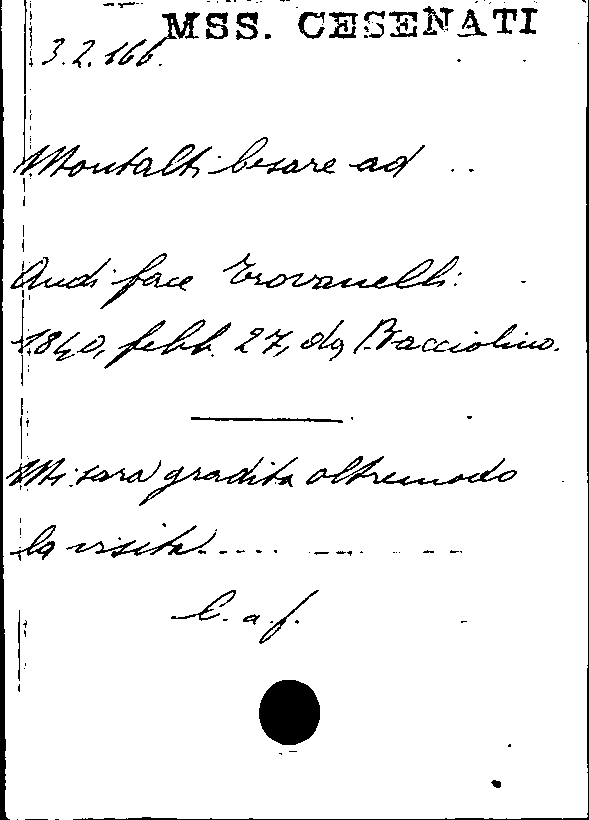 MSS. CESENATI
3.2.166.
Montalti Cesare ad ..
Audiface Trovanelli:
1840, febb. 27, da Bacciolino.
Mi sarà gradita oltremodo
la visita..... --- - --
C. a. f.